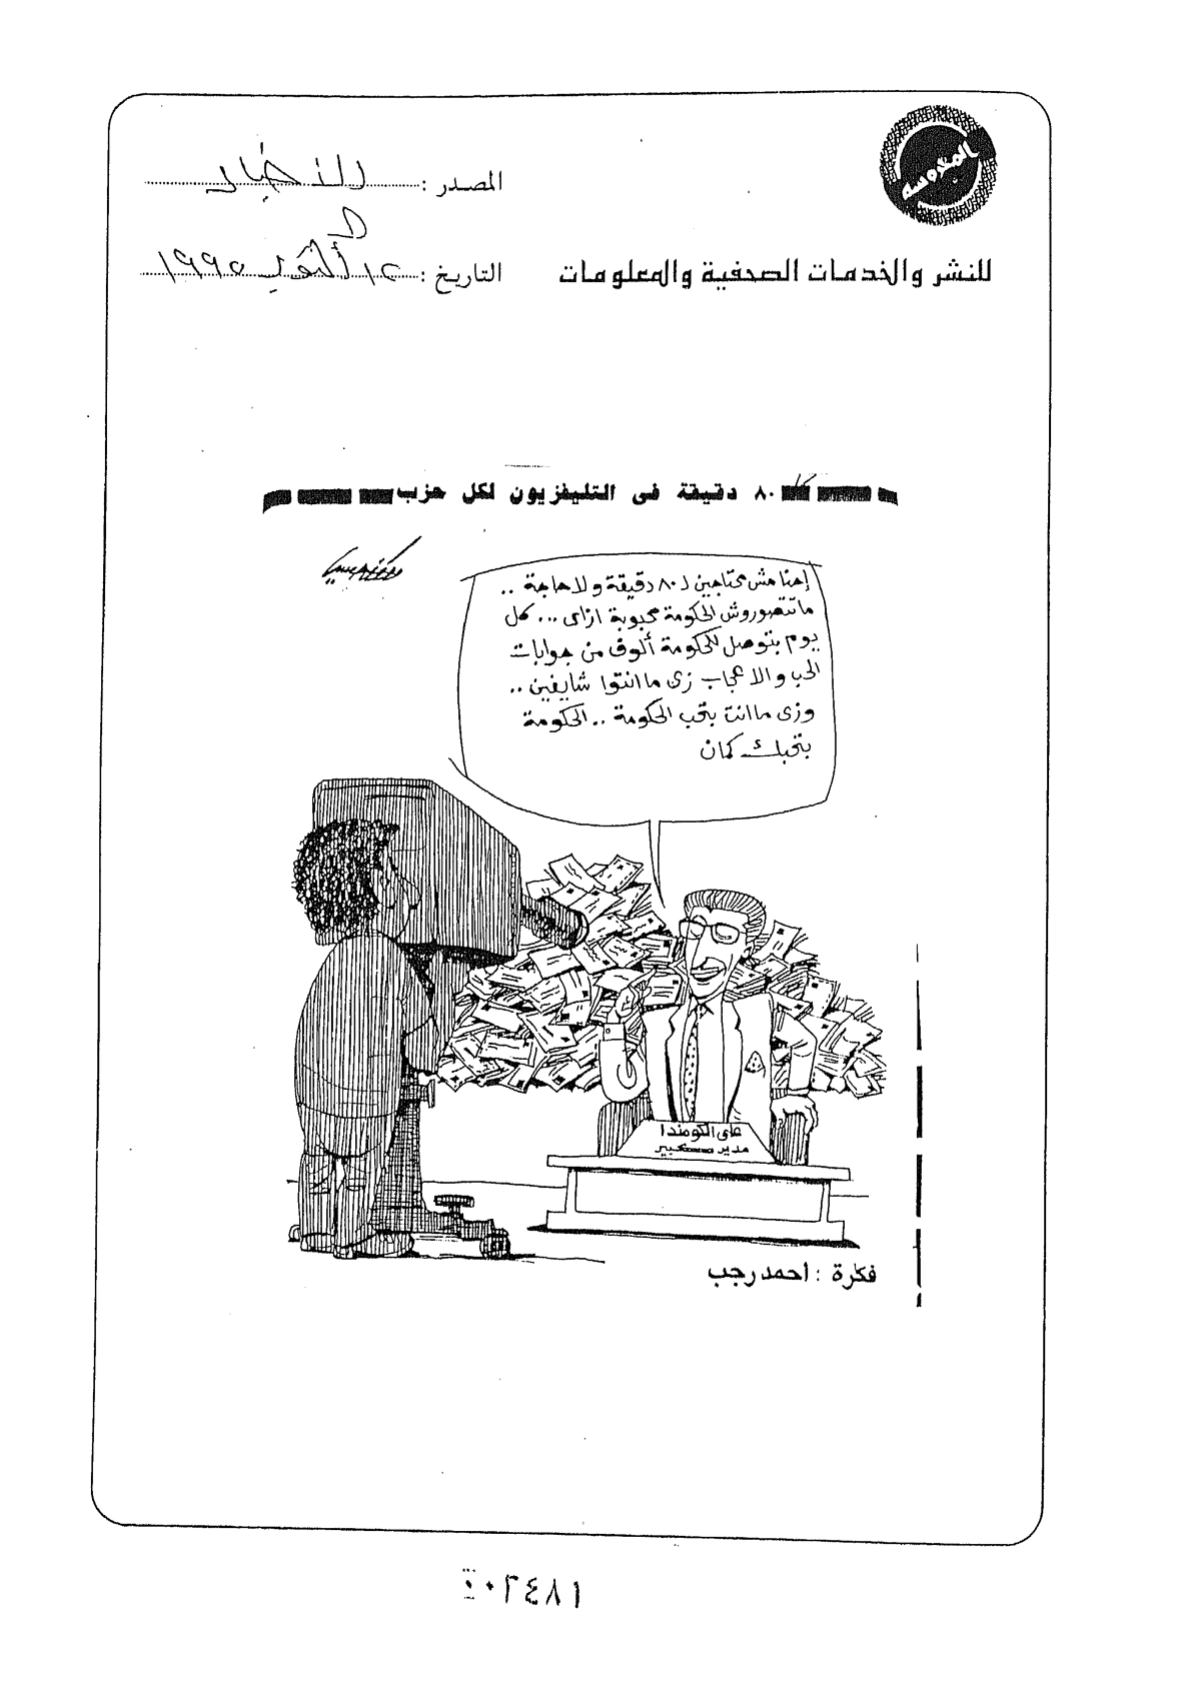 المدروسه
للنشر والخدمات الصحفية والمعلومات
المصدر : الأخبار
التاريخ : ١٢ أكتوبر ١٩٩٥
٨٠ دقيقة فى التليفزيون لكل حزب
إحنا مش محتاجين لـ ٨٠ دقيقة ولا حاجة ..
ما تتصوروش الحكومة محبوبة ازاى ... كل
يوم بتوصل للحكومة ألوف من جوابات
الحب والاعجاب زى ما انتوا شايفين ..
وزى ما انت بتحب الحكومة .. الحكومة
بتحبك كمان
على الكومندا
مدير كبير
فكرة : احمد رجب